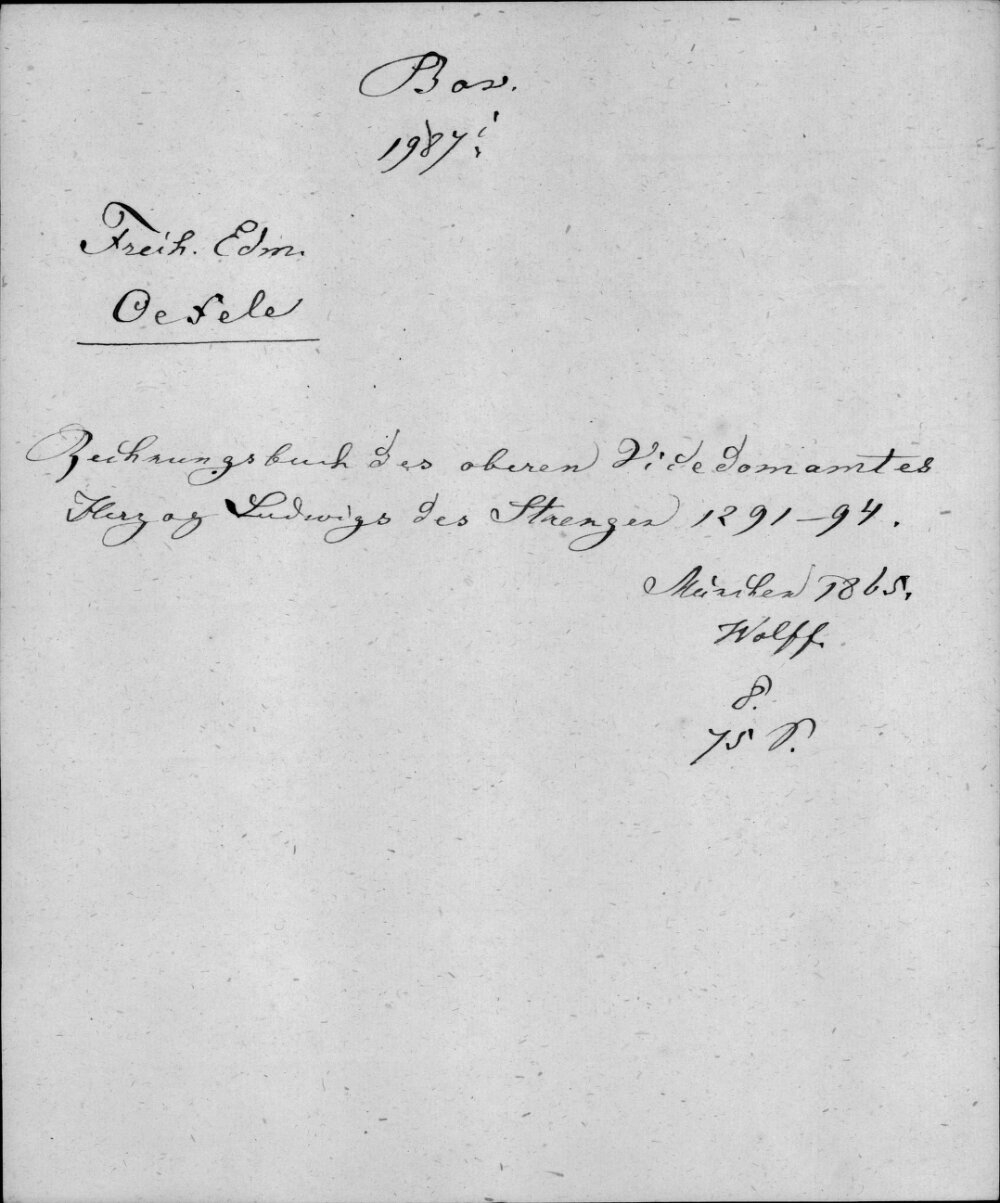 Bav.
1987i
Freih. Edm.
Oefele
Rechnungsbuch des oberen Videdomamtes
Herzog Ludwigs des Strengen 1291–94.
München 1865.
Wolff.
8.
75 S.